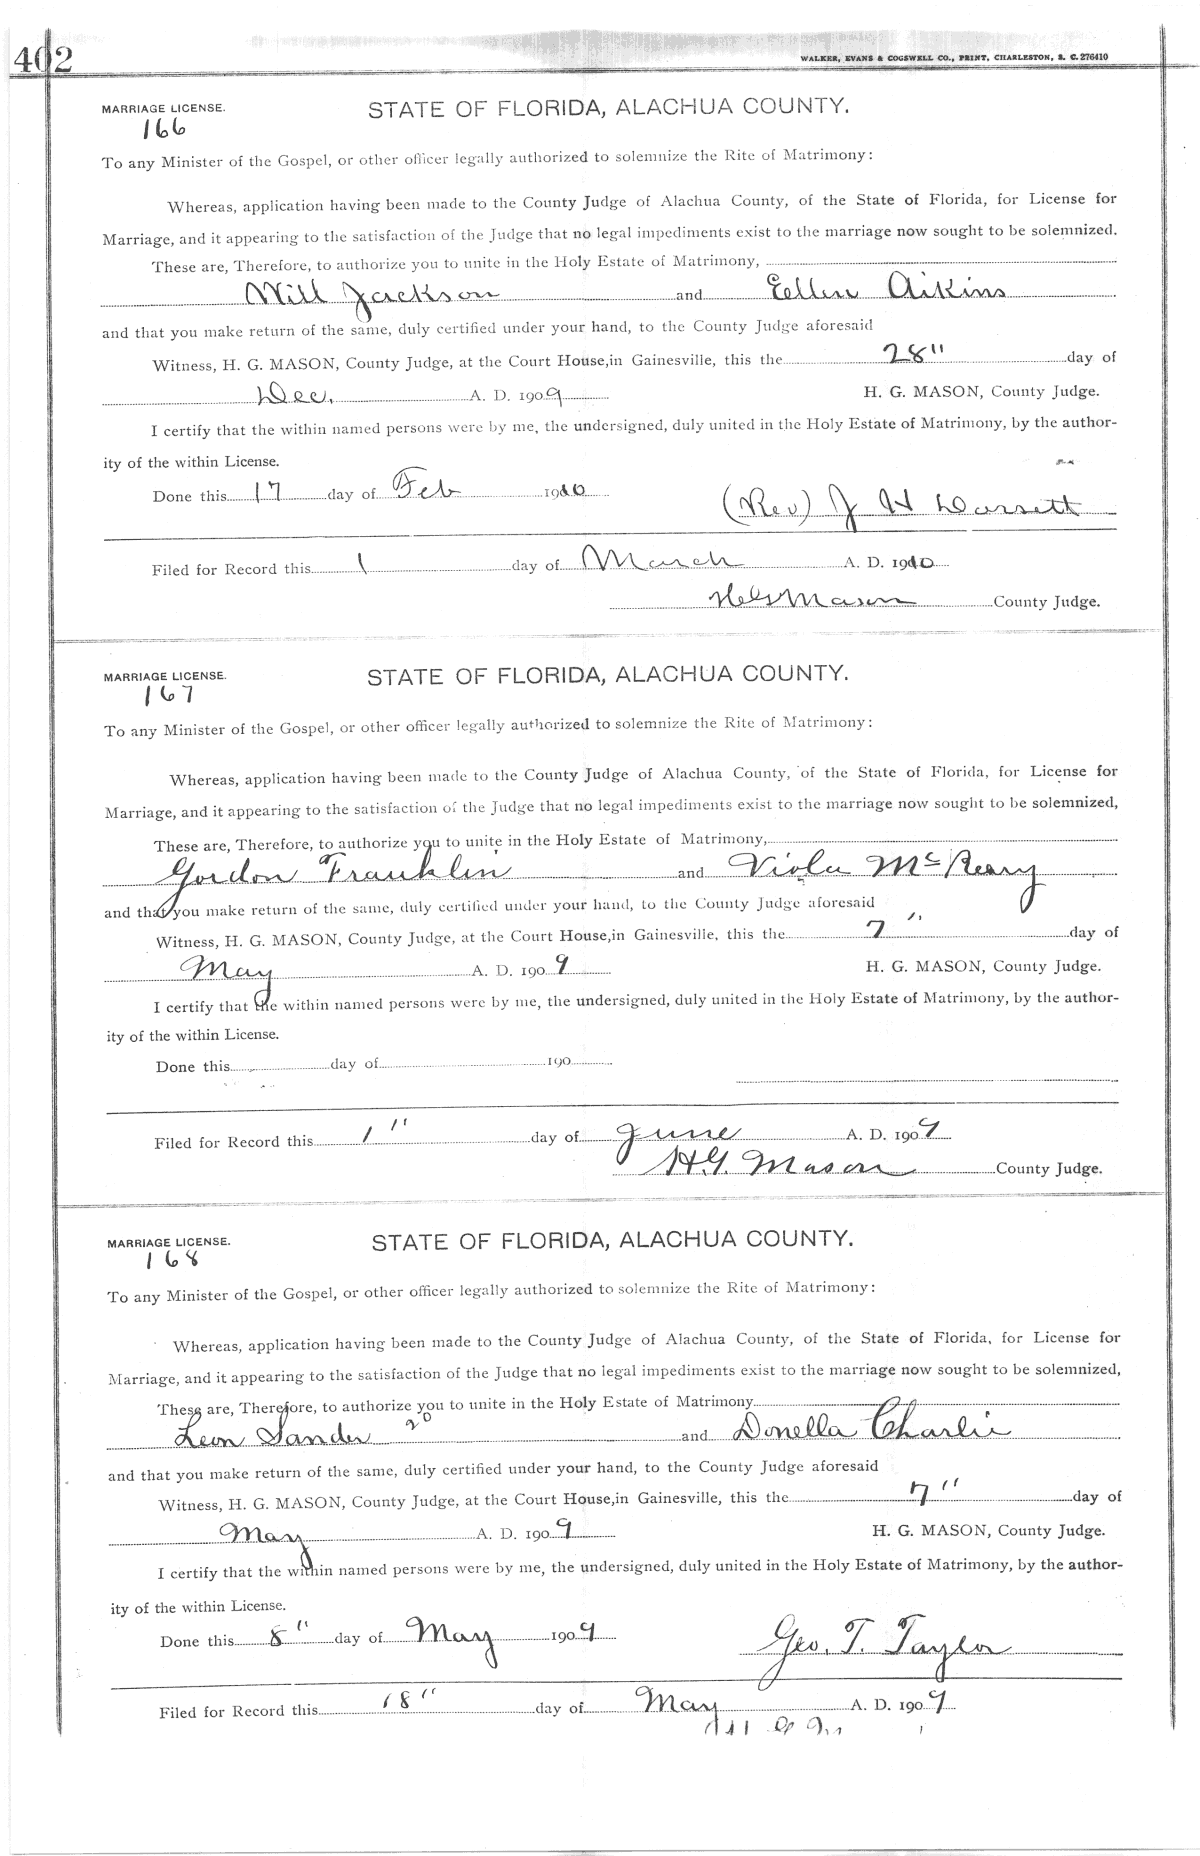 402
WALKER, EVANS & COGSWELL CO., PRINT, CHARLESTON, S. C. 276410
MARRIAGE LICENSE.
STATE OF FLORIDA, ALACHUA COUNTY.
166
To any Minister of the Gospel, or other officer legally authorized to solemnize the Rite of Matrimony:
Whereas, application having been made to the County Judge of Alachua County, of the State of Florida, for License for
Marriage, and it appearing to the satisfaction of the Judge that no legal impediments exist to the marriage now sought to be solemnized.
These are, Therefore, to authorize you to unite in the Holy Estate of Matrimony,
Will Jackson and Eellen Aikins
and that you make return of the same, duly certified under your hand, to the County Judge aforesaid
Witness, H. G. MASON, County Judge, at the Court House, in Gainesville, this the 28" day of
Dec. A. D. 1909 H. G. MASON, County Judge.
I certify that the within named persons were by me, the undersigned, duly united in the Holy Estate of Matrimony, by the author-
ity of the within License.
Done this 17 day of Feb 1910
(Rev) J H Dorsett
Filed for Record this 1 day of March A. D. 1910
Mason County Judge.
MARRIAGE LICENSE.
STATE OF FLORIDA, ALACHUA COUNTY.
167
To any Minister of the Gospel, or other officer legally authorized to solemnize the Rite of Matrimony:
Whereas, application having been made to the County Judge of Alachua County, of the State of Florida, for License for
Marriage, and it appearing to the satisfaction of the Judge that no legal impediments exist to the marriage now sought to be solemnized,
These are, Therefore, to authorize you to unite in the Holy Estate of Matrimony,
Gordon Franklin and Viola McReary
and that you make return of the same, duly certified under your hand, to the County Judge aforesaid
Witness, H. G. MASON, County Judge, at the Court House, in Gainesville, this the 7" day of
May A. D. 1909 H. G. MASON, County Judge.
I certify that the within named persons were by me, the undersigned, duly united in the Holy Estate of Matrimony, by the author-
ity of the within License.
Done this day of 190
Filed for Record this 1" day of June A. D. 1909
H.G. Mason County Judge.
MARRIAGE LICENSE.
STATE OF FLORIDA, ALACHUA COUNTY.
168
To any Minister of the Gospel, or other officer legally authorized to solemnize the Rite of Matrimony:
Whereas, application having been made to the County Judge of Alachua County, of the State of Florida, for License for
Marriage, and it appearing to the satisfaction of the Judge that no legal impediments exist to the marriage now sought to be solemnized,
These are, Therefore, to authorize you to unite in the Holy Estate of Matrimony
Leon Sander 20 and Donella Charlie
and that you make return of the same, duly certified under your hand, to the County Judge aforesaid
Witness, H. G. MASON, County Judge, at the Court House, in Gainesville, this the 7" day of
May A. D. 1909 H. G. MASON, County Judge.
I certify that the within named persons were by me, the undersigned, duly united in the Holy Estate of Matrimony, by the author-
ity of the within License.
Done this 8" day of May 1909
Geo. T. Taylor
Filed for Record this 18" day of May A. D. 1909